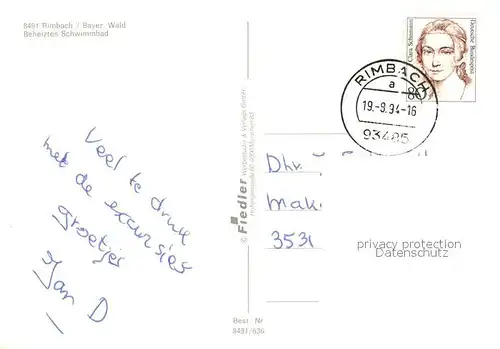 8491 Rimbach / Bayer. Wald
Beheiztes Schwimmbad
Veel te druk
met de excursies
groetjes
Jan D
© Fiedler
Best. Nr.
8491/636
Clara Schumann
Deutsche Bundespost
80
RIMBACH
a
19.-9.94-16
93485
Dhr.
Mak
3531
privacy protection
Datenschutz